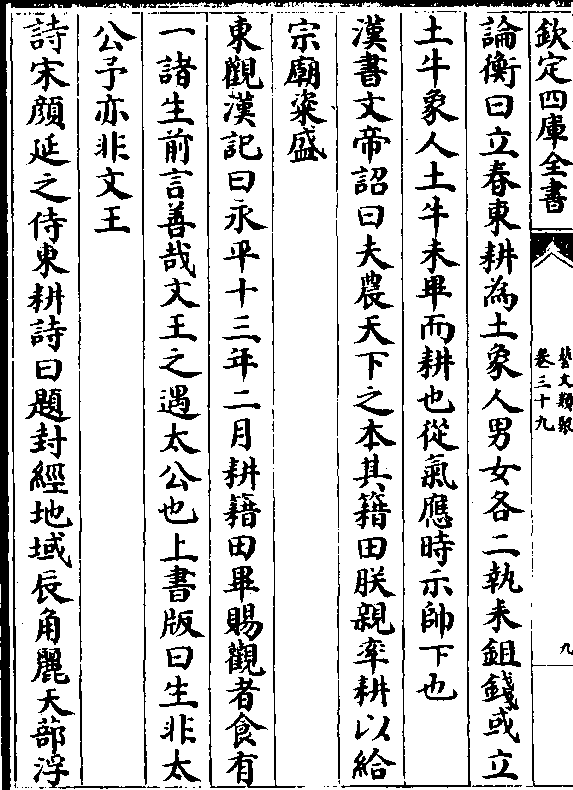 欽定四庫全書
藝文類聚
卷三十九
九
論衡曰立春東耕為土象人男女各二執耒鉏錢或立
土牛象人土牛未畢而耕也從氣應時示帥下也
漢書文帝詔曰夫農天下之本其籍田朕親率耕以給
宗廟粢盛
東觀漢記曰永平十三年二月耕籍田畢賜觀者食有
一諸生前言善哉文王之遇太公也上書版曰生非太
公予亦非文王
詩宋顔延之侍東耕詩曰題封經地域辰角麗天蔀浮